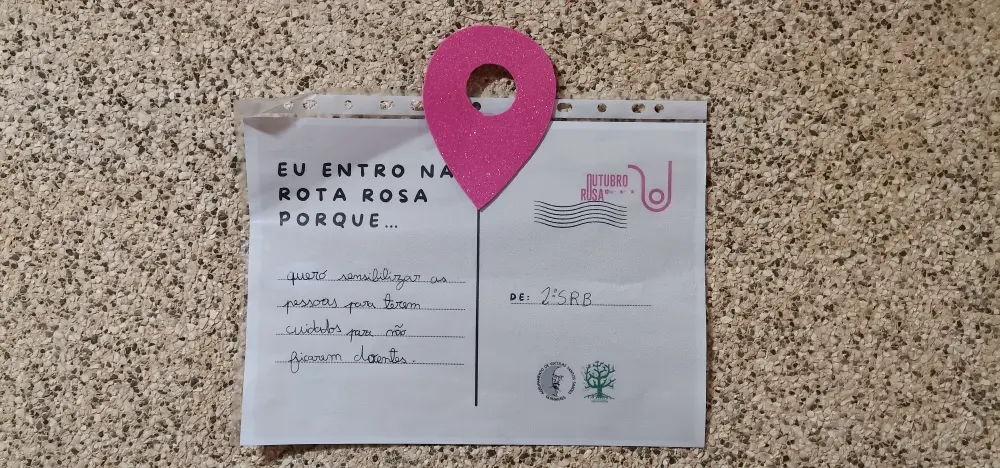 EU ENTRO NA
ROTA ROSA
PORQUE...
quero sensibilizar as
pessoas para terem
cuidados para não
ficarem doentes.
OUTUBRO
ROSA
DE: 2º SRB